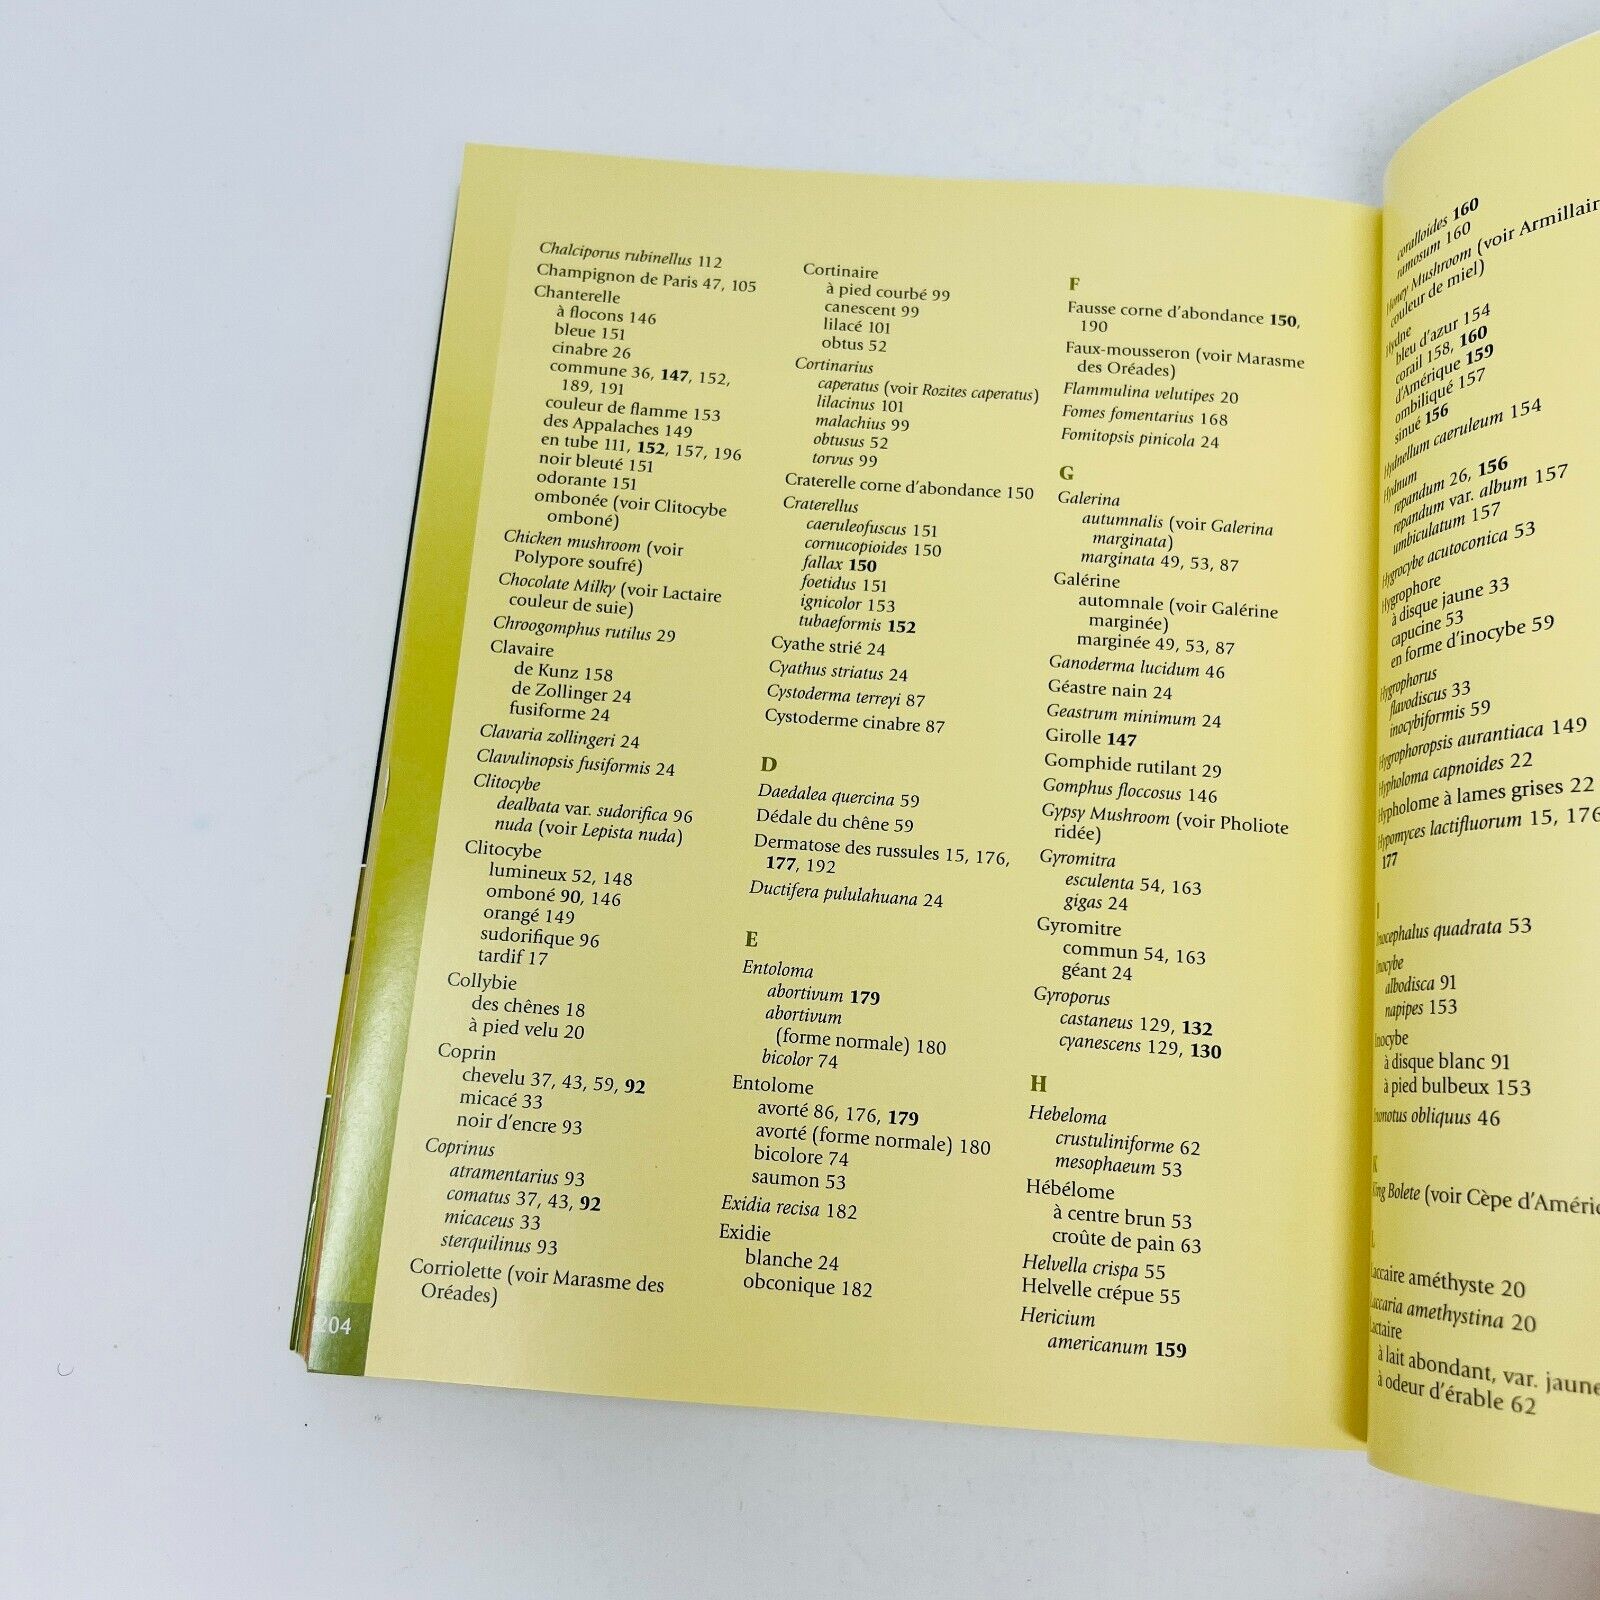 Chalciporus rubinellus 112
Champignon de Paris 47, 105
Chanterelle
à flocons 146
bleue 151
cinabre 26
commune 36, 147, 152,
189, 191
couleur de flamme 153
des Appalaches 149
en tube 111, 152, 157, 196
noir bleuté 151
odorante 151
ombonée (voir Clitocybe
omboné)
Chicken mushroom (voir
Polypore soufré)
Chocolate Milky (voir Lactaire
couleur de suie)
Chroogomphus rutilus 29
Clavaire
de Kunz 158
de Zollinger 24
fusiforme 24
Clavaria zollingeri 24
Clavulinopsis fusiformis 24
Clitocybe
dealbata var. sudorifica 96
nuda (voir Lepista nuda)
Clitocybe
lumineux 52, 148
omboné 90, 146
orangé 149
sudorifique 96
tardif 17
Collybie
des chênes 18
à pied velu 20
Coprin
chevelu 37, 43, 59, 92
micacé 33
noir d'encre 93
Coprinus
atramentarius 93
comatus 37, 43, 92
micaceus 33
sterquilinus 93
Corriolette (voir Marasme des
Oréades)
204
Cortinaire
à pied courbé 99
canescent 99
lilacé 101
obtus 52
Cortinarius
caperatus (voir Rozites caperatus)
lilacinus 101
malachius 99
obtusus 52
torvus 99
Craterelle corne d'abondance 150
Craterellus
caeruleofuscus 151
cornucopioides 150
fallax 150
foetidus 151
ignicolor 153
tubaeformis 152
Cyathe strié 24
Cyathus striatus 24
Cystoderma terreyi 87
Cystoderme cinabre 87
D
Daedalea quercina 59
Dédale du chêne 59
Dermatose des russules 15, 176,
177, 192
Ductifera pululahuana 24
E
Entoloma
abortivum 179
abortivum
(forme normale) 180
bicolor 74
Entolome
avorté 86, 176, 179
avorté (forme normale) 180
bicolore 74
saumon 53
Exidia recisa 182
Exidie
blanche 24
obconique 182
F
Fausse corne d'abondance 150,
190
Faux-mousseron (voir Marasme
des Oréades)
Flammulina velutipes 20
Fomes fomentarius 168
Fomitopsis pinicola 24
G
Galerina
autumnalis (voir Galerina
marginata)
marginata 49, 53, 87
Galérine
automnale (voir Galérine
marginée)
marginée 49, 53, 87
Ganoderma lucidum 46
Géastre nain 24
Geastrum minimum 24
Girolle 147
Gomphide rutilant 29
Gomphus floccosus 146
Gypsy Mushroom (voir Pholiote
ridée)
Gyromitra
esculenta 54, 163
gigas 24
Gyromitre
commun 54, 163
géant 24
Gyroporus
castaneus 129, 132
cyanescens 129, 130
H
Hebeloma
crustuliniforme 62
mesophaeum 53
Hébélome
à centre brun 53
croûte de pain 63
Helvella crispa 55
Helvelle crépue 55
Hericium
americanum 159
coralloides 160
ramosum 160
Honey Mushroom (voir Armillaire
couleur de miel)
Hydne
bleu d'azur 154
corail 158, 160
d'Amérique 159
ombiliqué 157
sinué 156
Hydnellum caeruleum 154
Hydnum
repandum 26, 156
repandum var. album 157
umbilicatum 157
Hygrocybe acutoconica 53
Hygrophore
à disque jaune 33
capucine 53
en forme d'inocybe 59
Hygrophorus
flavodiscus 33
inocybiformis 59
Hygrophoropsis aurantiaca 149
Hypholoma capnoides 22
Hypholome à lames grises 22
Hypomyces lactifluorum 15, 176
177
I
Inocephalus quadrata 53
Inocybe
albodisca 91
napipes 153
Inocybe
à disque blanc 91
à pied bulbeux 153
Inonotus obliquus 46
K
King Bolete (voir Cèpe d'Améri
L
Laccaire améthyste 20
Laccaria amethystina 20
Lactaire
à lait abondant, var. jaune
à odeur d'érable 62